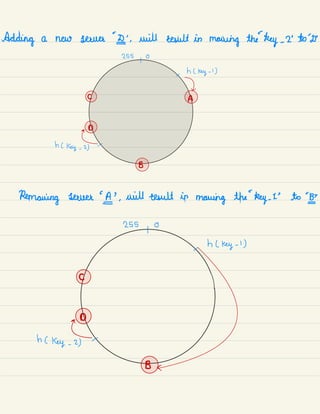 Adding a new server "D", will result in moving the "key-2" to "D"
255 0
h(key-1)
C
A
D
h(key-2)
B
Removing server 'A', will result in moving the "key-1" to "B"
255 0
h(key-1)
C
D
h(key-2)
B